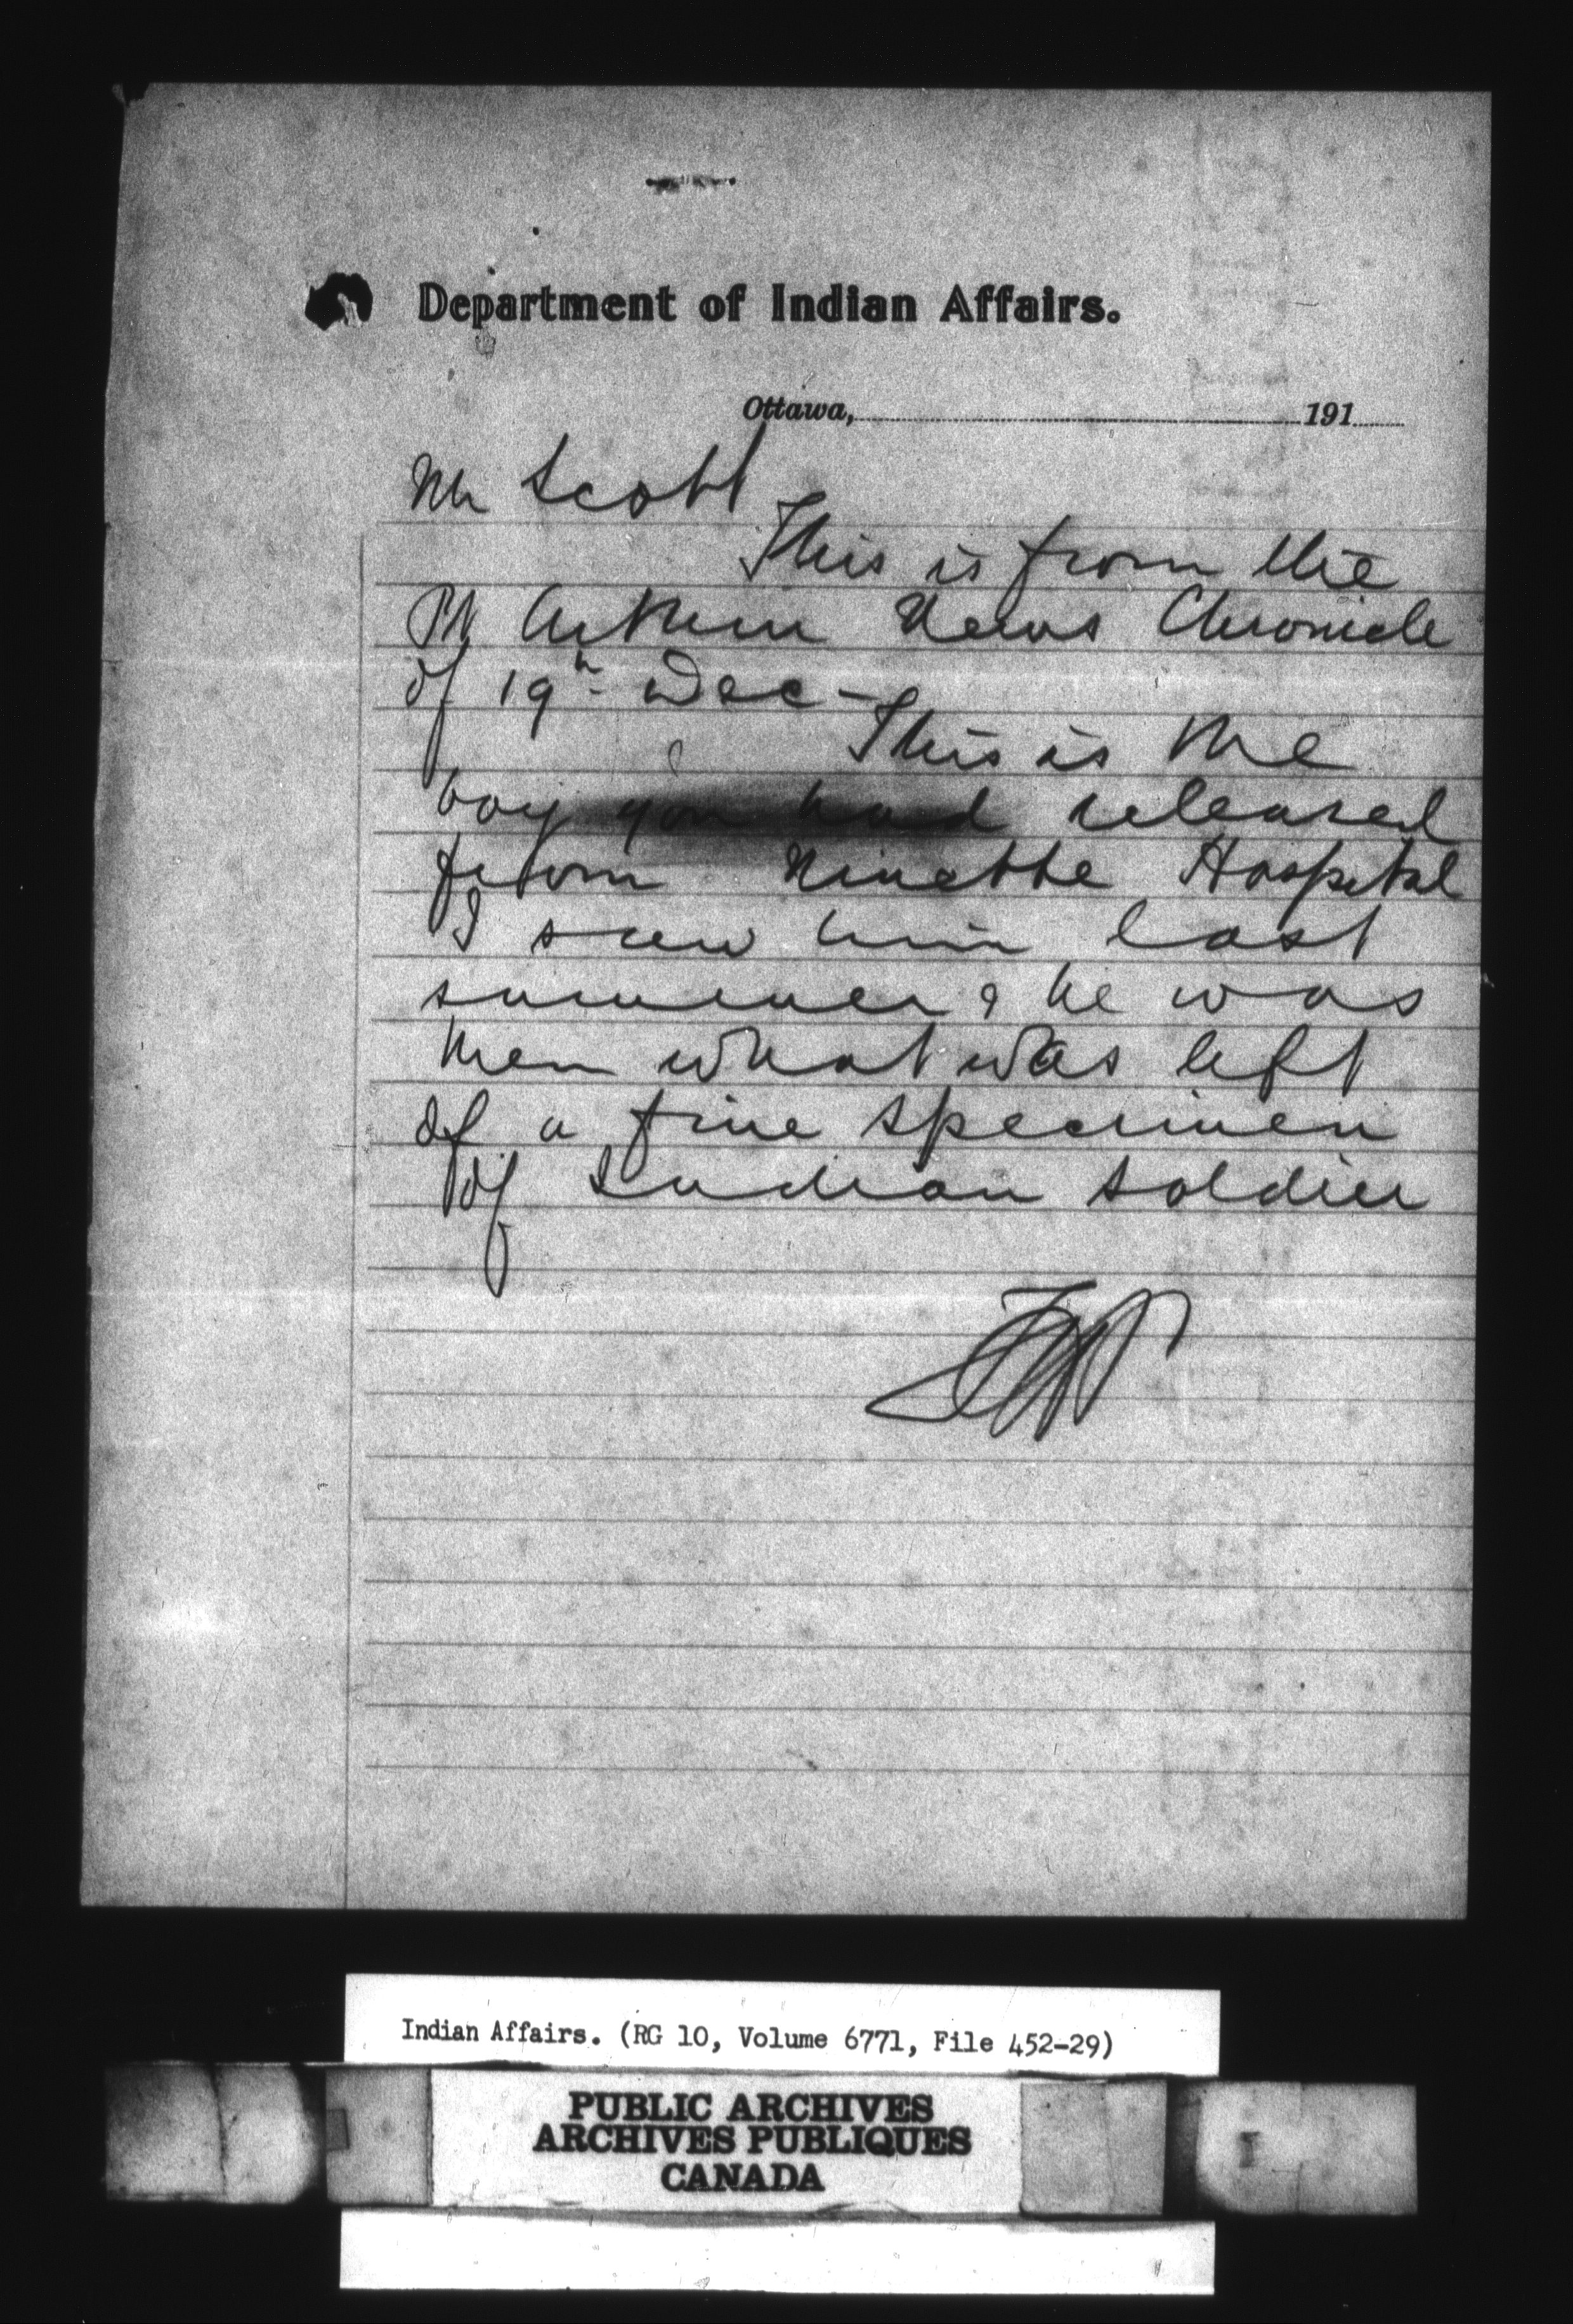 Department of Indian Affairs.
Ottawa, 191
Mr Scott
This is from the
Pt Arthur News Chronicle
of 19th Dec -
This is the
boy you had released
from Ninette Hospital
I saw him last
summer & he was
then what was left
of a fine specimen
of Indian soldier
Indian Affairs. (RG 10, Volume 6771, File 452-29)
PUBLIC ARCHIVES
ARCHIVES PUBLIQUES
CANADA